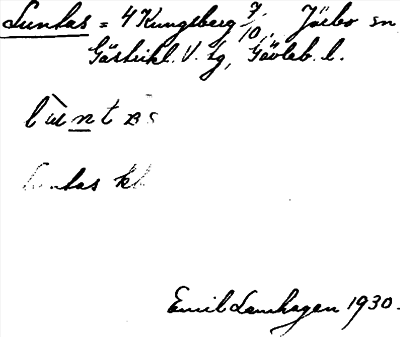 Luntas = 4 Kungsberg 7/10, Järbo sn
Gästrikl. V. tg, Gävleb. l.
lùntas
Luntas kb
Emil Lamhagen 1930.